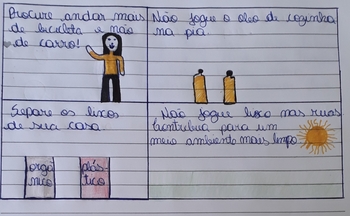 Procure andar mais
de bicicleta e não
de carro!
Não jogue o oleo de cozinha
na pia.
Separe os lixos
de sua casa.
orgâ
nico
plás-
tico
Não jogue lixo nas ruas
contribua para um
meio ambiente mais limpo